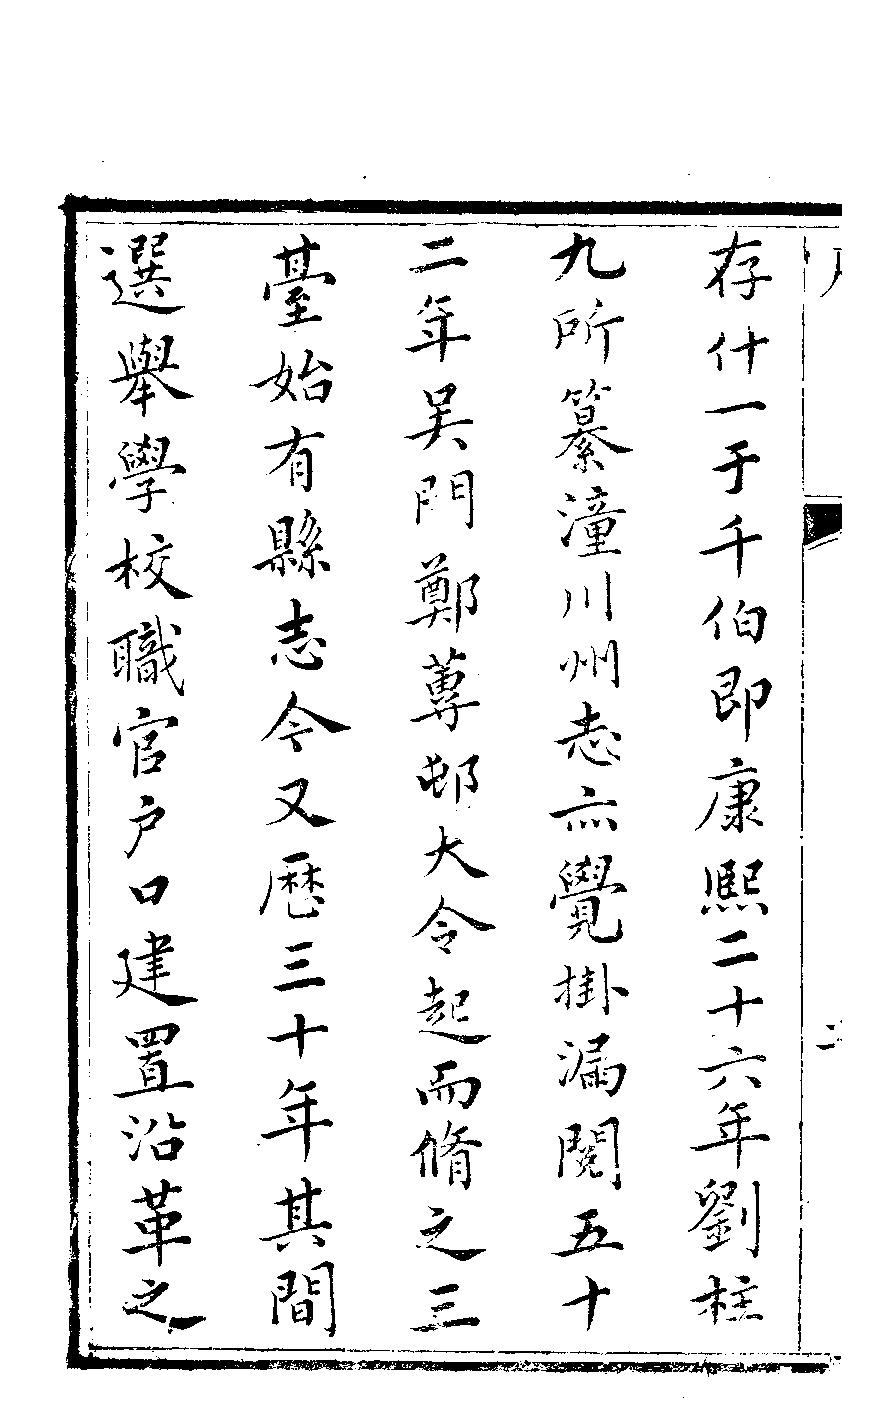 存什一于千伯即康熙二十六年劉柱
九所纂潼川州志亦覺掛漏閱五十
二年吴門鄭蓴邨大令起而脩之三
臺始有縣志今又歷三十年其間
選舉學校職官户口建置沿革之
二